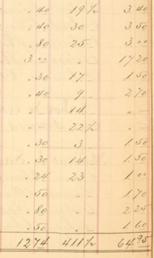 .40 19½ 3.40
.40 30 3.50
.80 25 3.00
3.00 . 17.20
.30 17 1.50
.40 9 2.70
. 14 .
. 22½ .
.30 3 1.50
.30 14 1.50
.24 23 1.00
.50 . 1.70
.80 . 2.25
.50 . 1.60
12.74 411½ 64.95